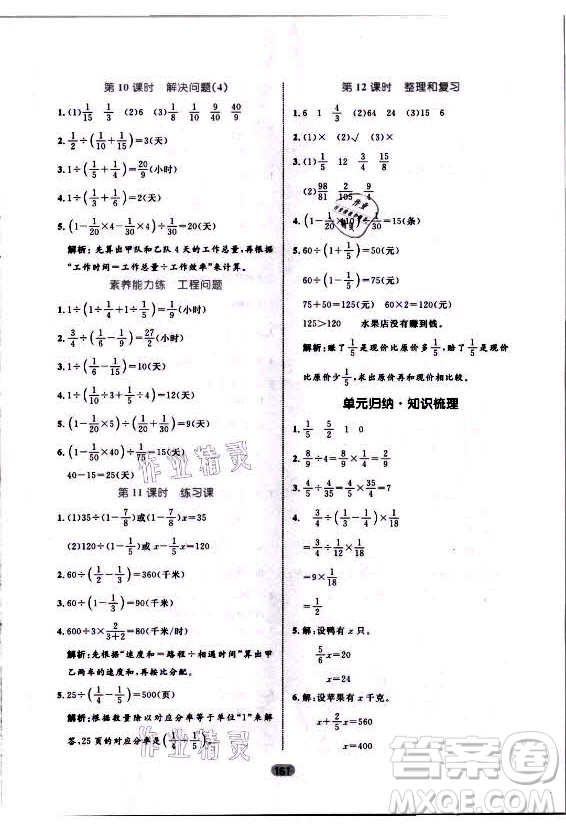 第 10 课时 解决问题(4)
1. (1) 1/15 1/3 (2)6 (3) 1/15 9/40 9/40
2. 1/2÷(1/15+1/10)=3(天)
3. 1÷(1/5+1/4)=20/9(小时)
4. 1÷(1/5+1/6)=
5. (1-1/20×4-1/30×4)÷1/20=
解析:先算出甲队和乙队 4 天的工作总量,再根据
“工作时间=工作总量÷工作效率”来计算。
素养能力练 工程问题
1. 1÷(1/3÷1+1÷1/5)=
2. 3/4÷(1/9-1/12)=27/2(小时)
3. 1÷(1/
4. (1-1/
5. (1-1/
6. 1÷(1/
40-15=25(天)
第 11 课时 练习课
1. (1)35÷(1-7/8)或(1-7/8)x=35
(2)120÷(1-1/5)或 x-1/5x=120
2. 60÷(1/2-1/3)=360(千米)
3. 60÷(1-
4. 600÷3×2/(3+2)=80(千米/时)
解析:根据“速度和=路程÷相遇时间”算出甲
乙两车的速度和,再进行解答。
5. 25÷(1/4-1/5)=500(页)
解析:根据数量除以对应分率等于单位“1”来解
答,25 页的对应分率是(1/4-1/5)。
第 12 课时 整理和复习
1. 6 1 4/3 (2)64 24 (3)15 6
2. (1)× (2)√ (3)×
3. (1) 1/5 12 3/4 15
(2) 98/81 2/105 9/20
4. (1-1/
=15(条)
5. 60÷(1-1/5)=75(元)
60÷(1+1/5)=50(元)
75+50=125(元) 60×2=120(元)
125>120 水果店没有赚到钱。
解析:赚了1/5是现价比原价多1/5,赔了1/5是现价
比原价少1/5,求出原价再和现价相比较。
单元归纳·知识梳理
1. 1/5 5/2 1 0
2. 1/
3. 4/5÷4/35=4/5×35/4=7
4. 3/4÷(1/3-1/4)×1/18
=3/4÷1/12×1/18
=9×1/18
=1/2
5. 解:设鸭有 x 只。
5/6x=20
x=24
6. 解:设苹果有 x 千克。
x+2/5x=560
x=400
161
作业精灵
作业精灵
答案圈
MXQE.COM